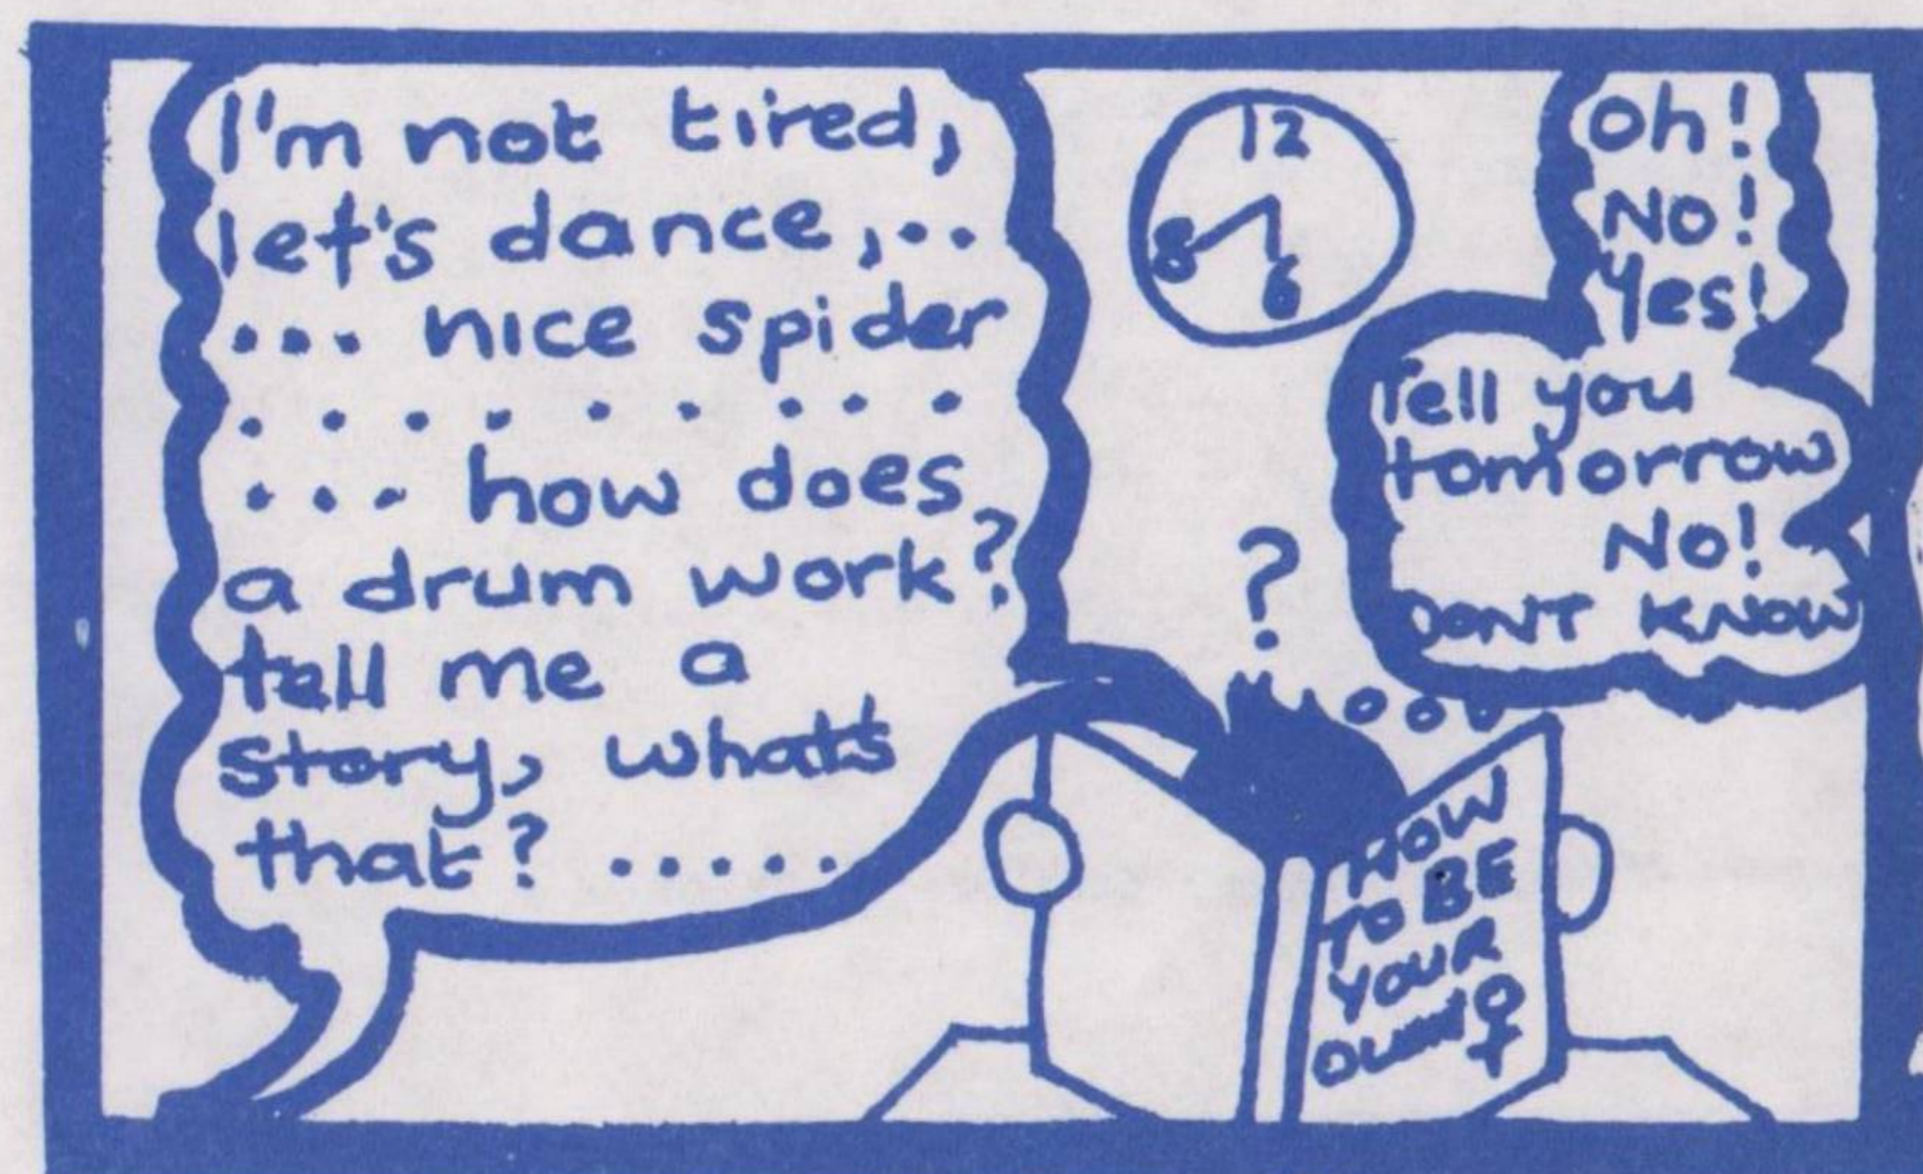 I'm not tired,
let's dance,..
... nice spider
. . . . . . . . .
... how does
a drum work?
tell me a
story, what's
that? .....
12
8
6
Oh!
No!
Yes!
Tell you
tomorrow
No!
DON'T KNOW
?
HOW
TO BE
YOUR
OWN ♀